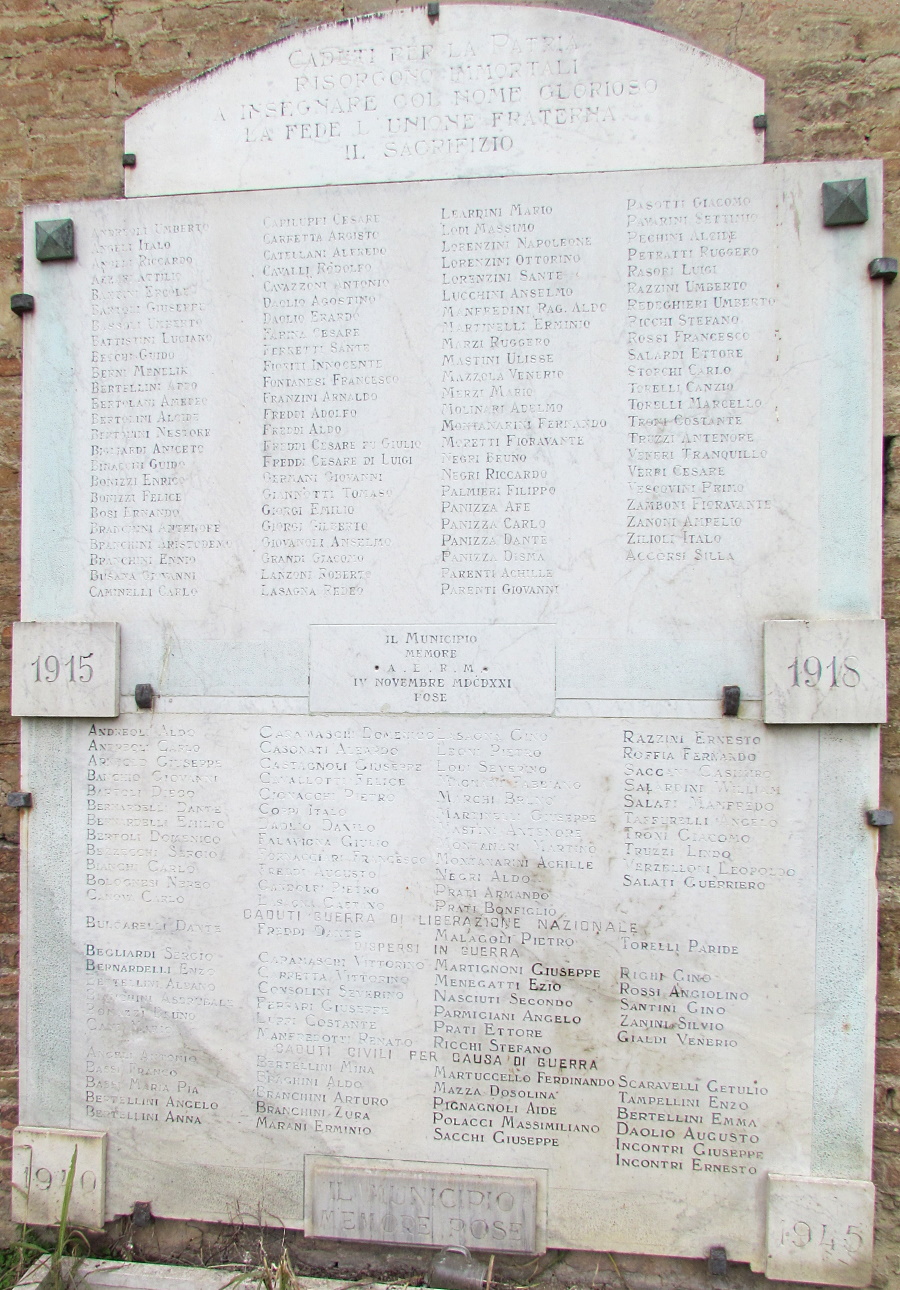 CADUTI PER LA PATRIA
RISORGONO IMMORTALI
A INSEGNARE COL NOME GLORIOSO
LA FEDE L'UNIONE FRATERNA
IL SACRIFIZIO
ANDREOLI UMBERTO
ANGELI ITALO
RICCARDO
ATTILIO
ERCOLE
GIUSEPPE
BASSOLI UMBERTO
BATTISTINI LUCIANO
BESCHI GUIDO
BERNI MENELIK
BERTELLINI
BERTOLANI
BERTOLINI ALCIDE
BERTOLINI NESTORE
BIGLIARDI ANICETO
BINACCHI GUIDO
BONIZZI ENRICO
BONIZZI FELICE
BOSI ERNANDO
BRANCHINI ANTENORE
BRANCHINI ARISTODEMO
BRANCHINI ENNIO
BUSANA GIOVANNI
CAMINELLI CARLO
CAPILUPPI CESARE
CARRETTA ARGISTO
CATELLANI ALFREDO
CAVALLI RODOLFO
CAVAZZONI ANTONIO
DAOLIO AGOSTINO
DAOLIO ERARDO
FARINA CESARE
FERRETTI SANTE
FIORINI INNOCENTE
FONTANESI FRANCESCO
FRANZINI ARNALDO
FREDDI ADOLFO
FREDDI ALDO
FREDDI CESARE FU GIULIO
FREDDI CESARE DI LUIGI
GERNANI GIOVANNI
GIANNOTTI TOMASO
GIORGI EMILIO
GIORGI GILBERTO
GIOVANOLI ANSELMO
GRANDI GIACOMO
LANZONI ROBERTO
LASAGNA REDEO
LEARDINI MARIO
LODI MASSIMO
LORENZINI NAPOLEONE
LORENZINI OTTORINO
LORENZINI SANTE
LUCCHINI ANSELMO
MANFREDINI RAG. ALDO
MARTINELLI ERMINIO
MARZI RUGGERO
MASTINI ULISSE
MAZZOLA VENERIO
MERZI MARIO
MOLINARI ADELMO
MONTANARINI FERNANDO
MORETTI FIORAVANTE
NEGRI BRUNO
NEGRI RICCARDO
PALMIERI FILIPPO
PANIZZA AFE
PANIZZA CARLO
PANIZZA DANTE
PANIZZA DISMA
PARENTI ACHILLE
PARENTI GIOVANNI
PASOTTI GIACOMO
PAVARINI SETTIMIO
PECHINI ALCIDE
PETRATTI RUGGERO
RASORI LUIGI
RAZZINI UMBERTO
REDEGHIERI UMBERTO
RICCHI STEFANO
ROSSI FRANCESCO
SALARDI ETTORE
STORCHI CARLO
TORELLI CANZIO
TORELLI MARCELLO
TRONI COSTANTE
TRUZZI ANTENORE
VENERI TRANQUILLO
VERRI CESARE
VESCOVINI PRIMO
ZAMBONI FIORAVANTE
ZANONI AMPELIO
ZILIOLI ITALO
ACCORSI SILLA
1915
IL MUNICIPIO
MEMORE
A. E. R. M.
IV NOVEMBRE MDCDXXI
POSE
1918
ANDREOLI ALDO
ANDREOLI CARLO
GIUSEPPE
GIOVANNI
BARTOLI DIEGO
BERNARDELLI DANTE
BERNARDELLI EMILIO
BERTOLI DOMENICO
SERGIO
BIANCHI CARLO
BOLOGNESI NEREO
CARLO
CARAMASCHI DOMENICO
CASONATI ALBARDO
CASTAGNOLI GIUSEPPE
CAVALLOTTI FELICE
PIETRO
COPPI ITALO
DAOLIO DANILO
FALAVIGNA GIULIO
FRANCESCO
FREDDI AUGUSTO
GANDOLFI PIETRO
LASAGNA GAETANO
LASAGNA GINO
LEONI PIETRO
LODI SEVERINO
MARCHI BRUNO
MARTINELLI GIUSEPPE
MASTINI ANTENORE
MONTANARI MARTINO
MONTANARINI ACHILLE
NEGRI ALDO
PRATI ARMANDO
PRATI BONFIGLIO
RAZZINI ERNESTO
ROFFIA FERNANDO
SACCANI CASIMIRO
SALARDINI WILLIAM
SALATI MANFREDO
TAFFURELLI ANGELO
TRONI GIACOMO
TRUZZI LINDO
VERZELLONI LEOPOLDO
SALATI GUERRIERO
CADUTI GUERRA DI LIBERAZIONE NAZIONALE
BULGARELLI DANTE
FREDDI DANTE
MALAGOLI PIETRO
TORELLI PARIDE
DISPERSI IN GUERRA
BEGLIARDI SERGIO
BERNARDELLI ENZO
BERTELLINI ALBANO
ASDRUBALE
CARAMASCHI VITTORINO
CARRETTA VITTORINO
CONSOLINI SEVERINO
FERRARI GIUSEPPE
COSTANTE
MANFREDOTTI RENATO
MARTIGNONI GIUSEPPE
MENEGATTI EZIO
NASCIUTI SECONDO
PARMIGIANI ANGELO
PRATI ETTORE
RICCHI STEFANO
RIGHI GINO
ROSSI ANGIOLINO
SANTINI GINO
ZANINI SILVIO
GIALDI VENERIO
CADUTI CIVILI PER CAUSA DI GUERRA
ANGELI ANTONIO
BASSI FRANCO
BASSI MARIA PIA
BERTELLINI ANGELO
BERTELLINI ANNA
BERTELLINI MINA
BIAGHINI ALDO
BRANCHINI ARTURO
BRANCHINI ZURA
MARANI ERMINIO
MARTUCCELLO FERDINANDO
MAZZA DOSOLINA
PIGNAGNOLI AIDE
POLACCI MASSIMILIANO
SACCHI GIUSEPPE
SCARAVELLI GETULIO
TAMPELLINI ENZO
BERTELLINI EMMA
DAOLIO AUGUSTO
INCONTRI GIUSEPPE
INCONTRI ERNESTO
1940
IL MUNICIPIO
MEMORE POSE
1945